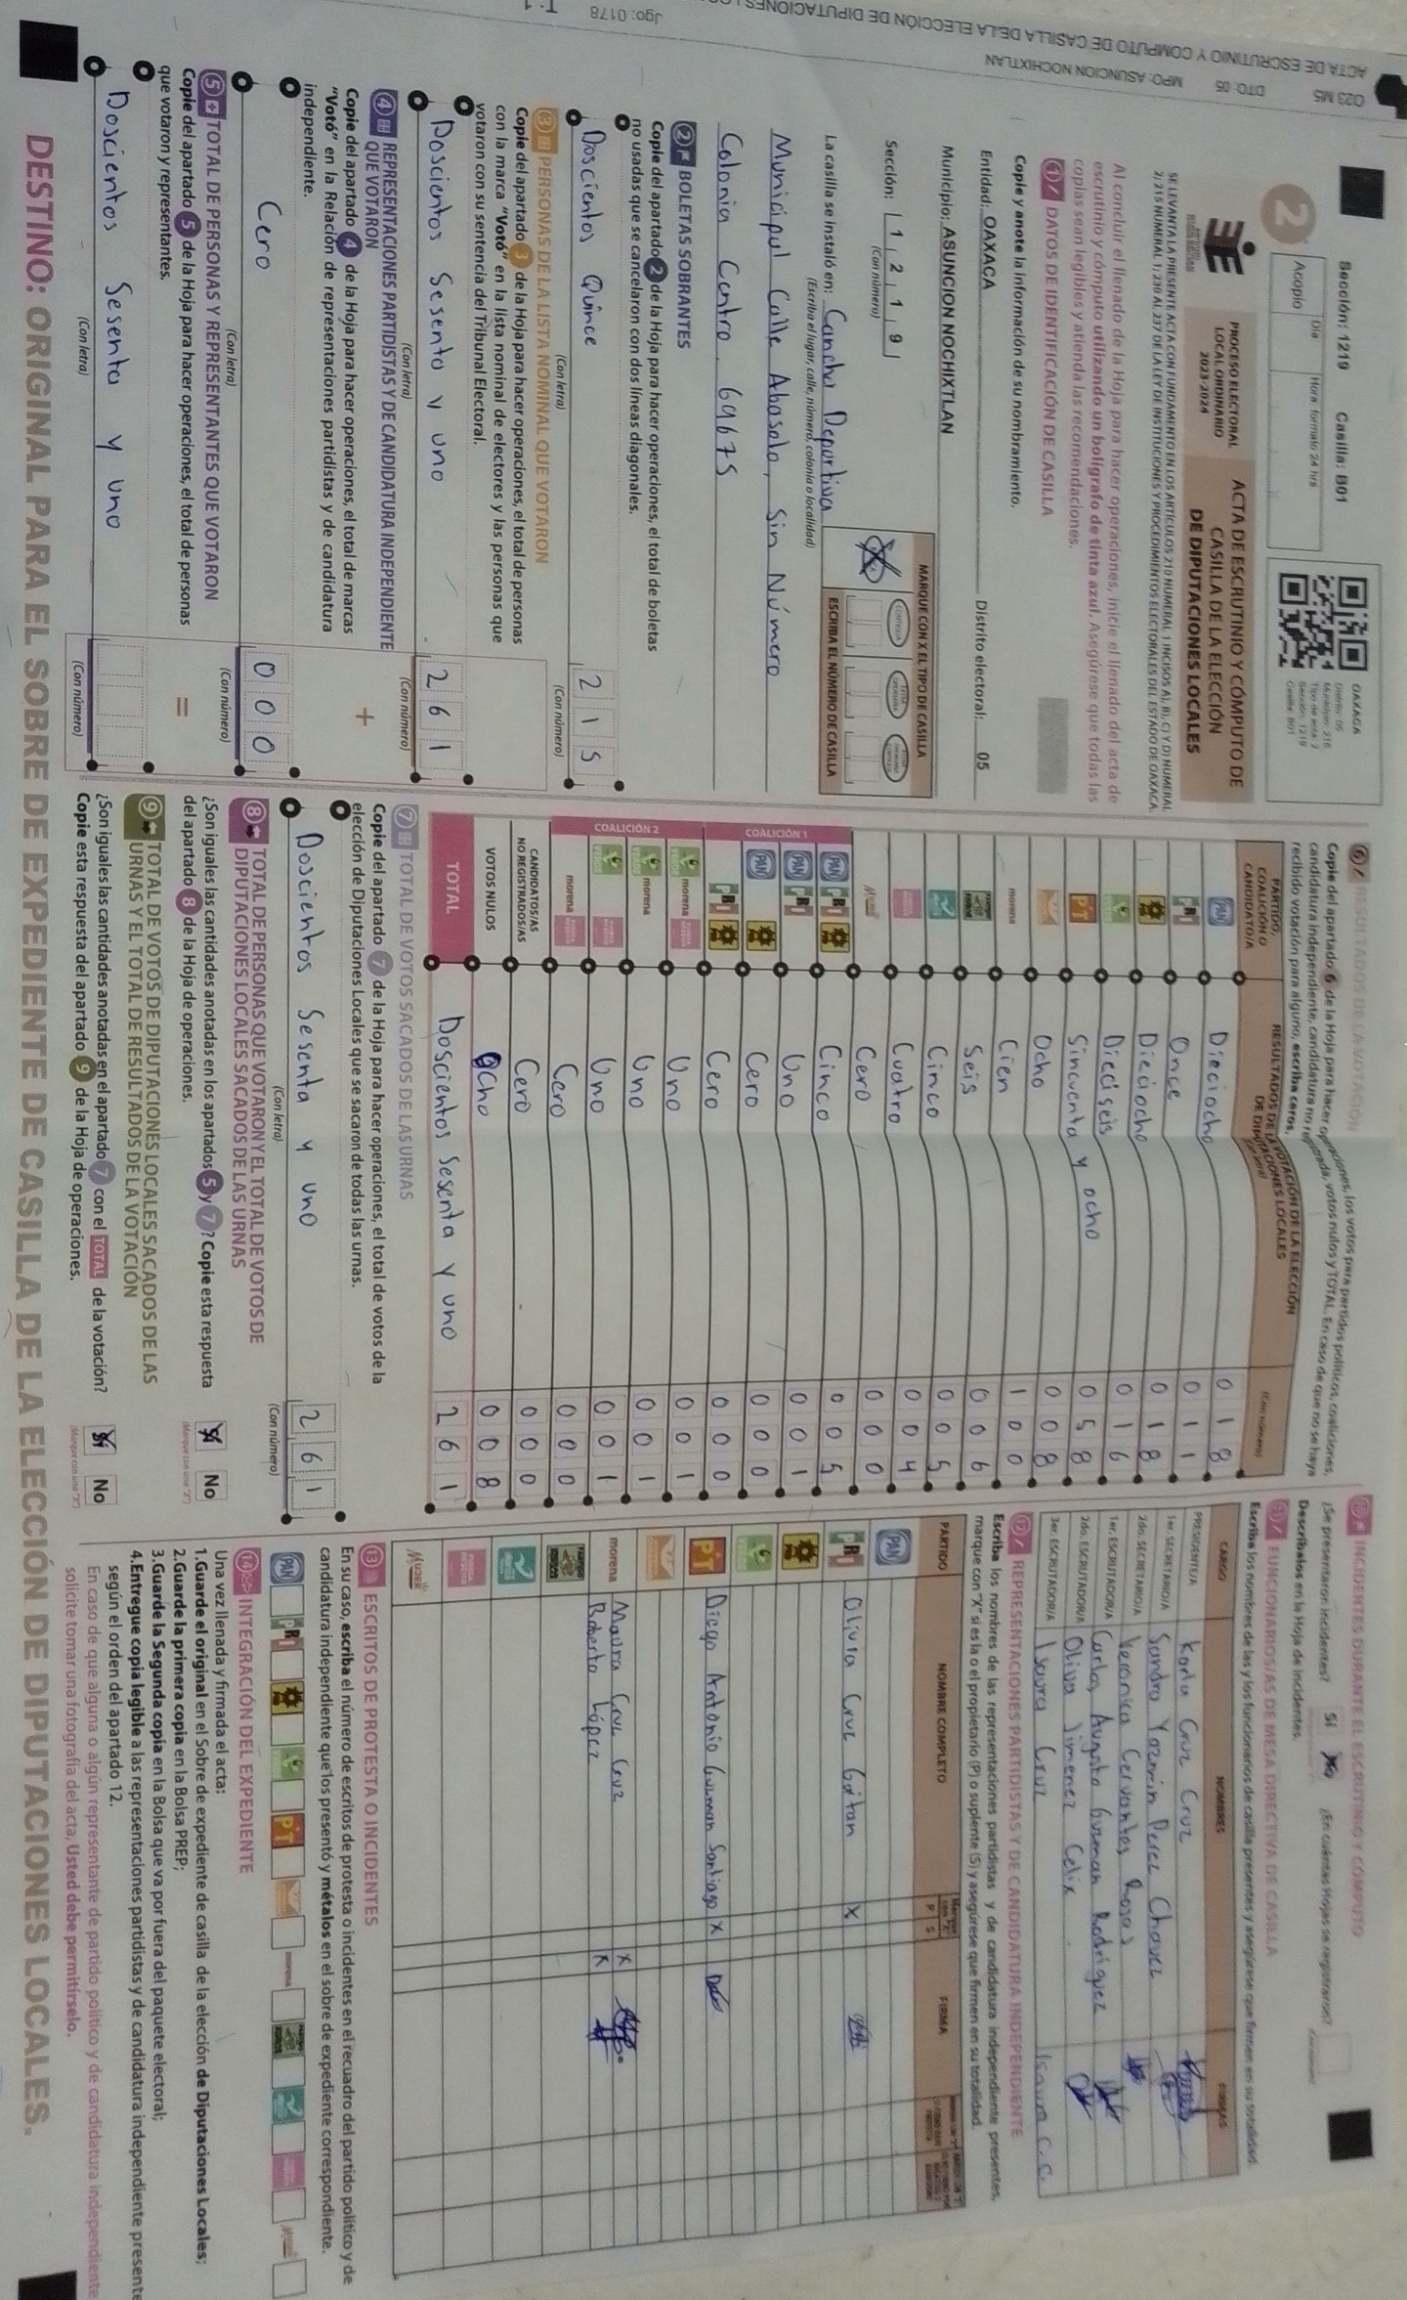 Sección: 1219 Casilla: B01
Acopio
Día
Hora formato 24 hrs
2
OAXACA
Distrito: 05
Sección: 1219
Casilla: B01
PROCESO ELECTORAL
LOCAL ORDINARIO
2023-2024
ACTA DE ESCRUTINIO Y CÓMPUTO DE
CASILLA DE LA ELECCIÓN
DE DIPUTACIONES LOCALES
SE LEVANTA LA PRESENTE ACTA CON FUNDAMENTO EN LOS ARTÍCULOS 210 NUMERAL 1 INCISOS A), B), C) Y D) NUMERAL
2; 215 NUMERAL 1; 230 AL 237 DE LA LEY DE INSTITUCIONES Y PROCEDIMIENTOS ELECTORALES DEL ESTADO DE OAXACA.
Al concluir el llenado de la Hoja para hacer operaciones, inicie el llenado del acta de
escrutinio y cómputo utilizando un bolígrafo de tinta azul. Asegúrese que todas las
copias sean legibles y atienda las recomendaciones.
1 DATOS DE IDENTIFICACIÓN DE CASILLA
Copie y anote la información de su nombramiento.
Entidad: OAXACA Distrito electoral: 05
Municipio: ASUNCION NOCHIXTLAN
Sección: 1 2 1 9
(Con número)
MARQUE CON X EL TIPO DE CASILLA
ESCRIBA EL NÚMERO DE CASILLA
La casilla se instaló en: Cancha Deportiva
(Escriba el lugar, calle, número, colonia o localidad)
Municipal Calle Abasolo, Sin Número
Colonia Centro. 69675
2 BOLETAS SOBRANTES
Copie del apartado 2 de la Hoja para hacer operaciones, el total de boletas
no usadas que se cancelaron con dos líneas diagonales.
Doscientos Quince 2 1 5
(Con letra) (Con número)
3 PERSONAS DE LA LISTA NOMINAL QUE VOTARON
Copie del apartado 3 de la Hoja para hacer operaciones, el total de personas
con la marca “Votó” en la lista nominal de electores y las personas que
votaron con su sentencia del Tribunal Electoral.
Doscientos Sesenta y uno 2 6 1
(Con letra) (Con número)
4 REPRESENTACIONES PARTIDISTAS Y DE CANDIDATURA INDEPENDIENTE
QUE VOTARON
Copie del apartado 4 de la Hoja para hacer operaciones, el total de marcas
“Votó” en la Relación de representaciones partidistas y de candidatura
independiente.
+
Cero 0 0 0
(Con letra) (Con número)
5 TOTAL DE PERSONAS Y REPRESENTANTES QUE VOTARON
Copie del apartado 5 de la Hoja para hacer operaciones, el total de personas
que votaron y representantes.
=
Doscientos Sesenta y uno
(Con letra) (Con número)
6 RESULTADOS DE LA VOTACIÓN
Copie del apartado 6 de la Hoja para hacer operaciones, los votos para partidos políticos, coaliciones,
candidatura independiente, candidatura no registrada, votos nulos y TOTAL. En caso de que no se haya
recibido votación para alguno, escriba ceros.
PARTIDO,
COALICIÓN O
CANDIDATO/A
RESULTADOS DE LA VOTACIÓN DE LA ELECCIÓN
DE DIPUTACIONES LOCALES
PAN Dieciocho 0 1 8
PRI Once 0 1 1
Dieciocho 0 1 8
Dieciseis 0 1 6
PT Sincuenta y ocho 0 5 8
Ocho 0 0 8
morena Cien 1 0 0
Seis 0 0 6
Cinco 0 0 5
Cuatro 0 0 4
Mujer Cero 0 0 0
COALICIÓN 1
PAN PRI Cinco 0 0 5
PAN PRI Uno 0 0 1
PAN Cero 0 0 0
PRI Cero 0 0 0
COALICIÓN 2
morena Uno 0 0 1
morena Uno 0 0 1
Uno 0 0 1
morena Cero 0 0 0
CANDIDATOS/AS
NO REGISTRADOS/AS Cero 0 0 0
VOTOS NULOS Ocho 0 0 8
TOTAL Doscientos Sesenta y uno 2 6 1
7 TOTAL DE VOTOS SACADOS DE LAS URNAS
Copie del apartado 7 de la Hoja para hacer operaciones, el total de votos de la
elección de Diputaciones Locales que se sacaron de todas las urnas.
Doscientos Sesenta y uno 2 6 1
(Con letra) (Con número)
8 TOTAL DE PERSONAS QUE VOTARON Y EL TOTAL DE VOTOS DE
DIPUTACIONES LOCALES SACADOS DE LAS URNAS
¿Son iguales las cantidades anotadas en los apartados 5 y 7? Copie esta respuesta
del apartado 8 de la Hoja de operaciones.
Sí No
9 TOTAL DE VOTOS DE DIPUTACIONES LOCALES SACADOS DE LAS
URNAS Y EL TOTAL DE RESULTADOS DE LA VOTACIÓN
¿Son iguales las cantidades anotadas en el apartado 7 con el TOTAL de la votación?
Copie esta respuesta del apartado 9 de la Hoja de operaciones.
Sí No
10 INCIDENTES DURANTE EL ESCRUTINIO Y CÓMPUTO
¿Se presentaron incidentes? Sí No ¿En cuántas Hojas se registraron?
Descríbalos en la Hoja de incidentes.
11 FUNCIONARIOS/AS DE MESA DIRECTIVA DE CASILLA
Escriba los nombres de las y los funcionarios de casilla presentes y asegúrese que firmen en su totalidad.
CARGO NOMBRES FIRMAS
PRESIDENTE/A Karla Cruz Cruz
1er. SECRETARIO/A Sandra Yazmin Perez Chavez
2do. SECRETARIO/A Veronica Cervantes Rosas
1er. ESCRUTADOR/A Carlos Augusto Guzman Rodriguez
2do. ESCRUTADOR/A Oliva Jimenez Celix
3er. ESCRUTADOR/A Isaura Cruz Isaura C. C.
12 REPRESENTACIONES PARTIDISTAS Y DE CANDIDATURA INDEPENDIENTE
Escriba los nombres de las representaciones partidistas y de candidatura independiente presentes,
marque con "X" si es la o el propietario (P) o suplente (S) y asegúrese que firmen en su totalidad.
PARTIDO NOMBRE COMPLETO P S FIRMA
PAN
PRI Olivia Cruz Gaitan X
PT Diego Antonio Guzman Santiago X
morena Maura Cruz Cruz X
Roberto López X
Mujer
13 ESCRITOS DE PROTESTA O INCIDENTES
En su caso, escriba el número de escritos de protesta o incidentes en el recuadro del partido político y de
candidatura independiente que los presentó y métalos en el sobre de expediente correspondiente.
PAN PRI PT morena
14 INTEGRACIÓN DEL EXPEDIENTE
Una vez llenada y firmada el acta:
1.Guarde el original en el Sobre de expediente de casilla de la elección de Diputaciones Locales;
2.Guarde la primera copia en la Bolsa PREP;
3.Guarde la Segunda copia en la Bolsa que va por fuera del paquete electoral;
4.Entregue copia legible a las representaciones partidistas y de candidatura independiente present
según el orden del apartado 12.
En caso de que alguna o algún representante de partido político y de candidatura independiente
solicite tomar una fotografía del acta, Usted debe permitírselo.
DESTINO: ORIGINAL PARA EL SOBRE DE EXPEDIENTE DE CASILLA DE LA ELECCIÓN DE DIPUTACIONES LOCALES.
023 M5 DTO: 05 MPO: ASUNCION NOCHIXTLAN
ACTA DE ESCRUTINIO Y COMPUTO DE CASILLA DE LA ELECCIÓN DE DIPUTACIONES
Jgo: 0178